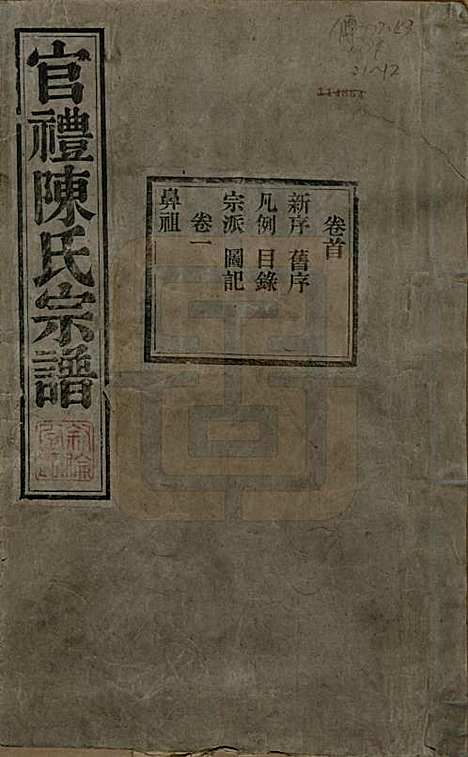 官禮陳氏宗譜
卷首
新序 舊序
凡例 目錄
宗派 圖記
卷一
鼻祖